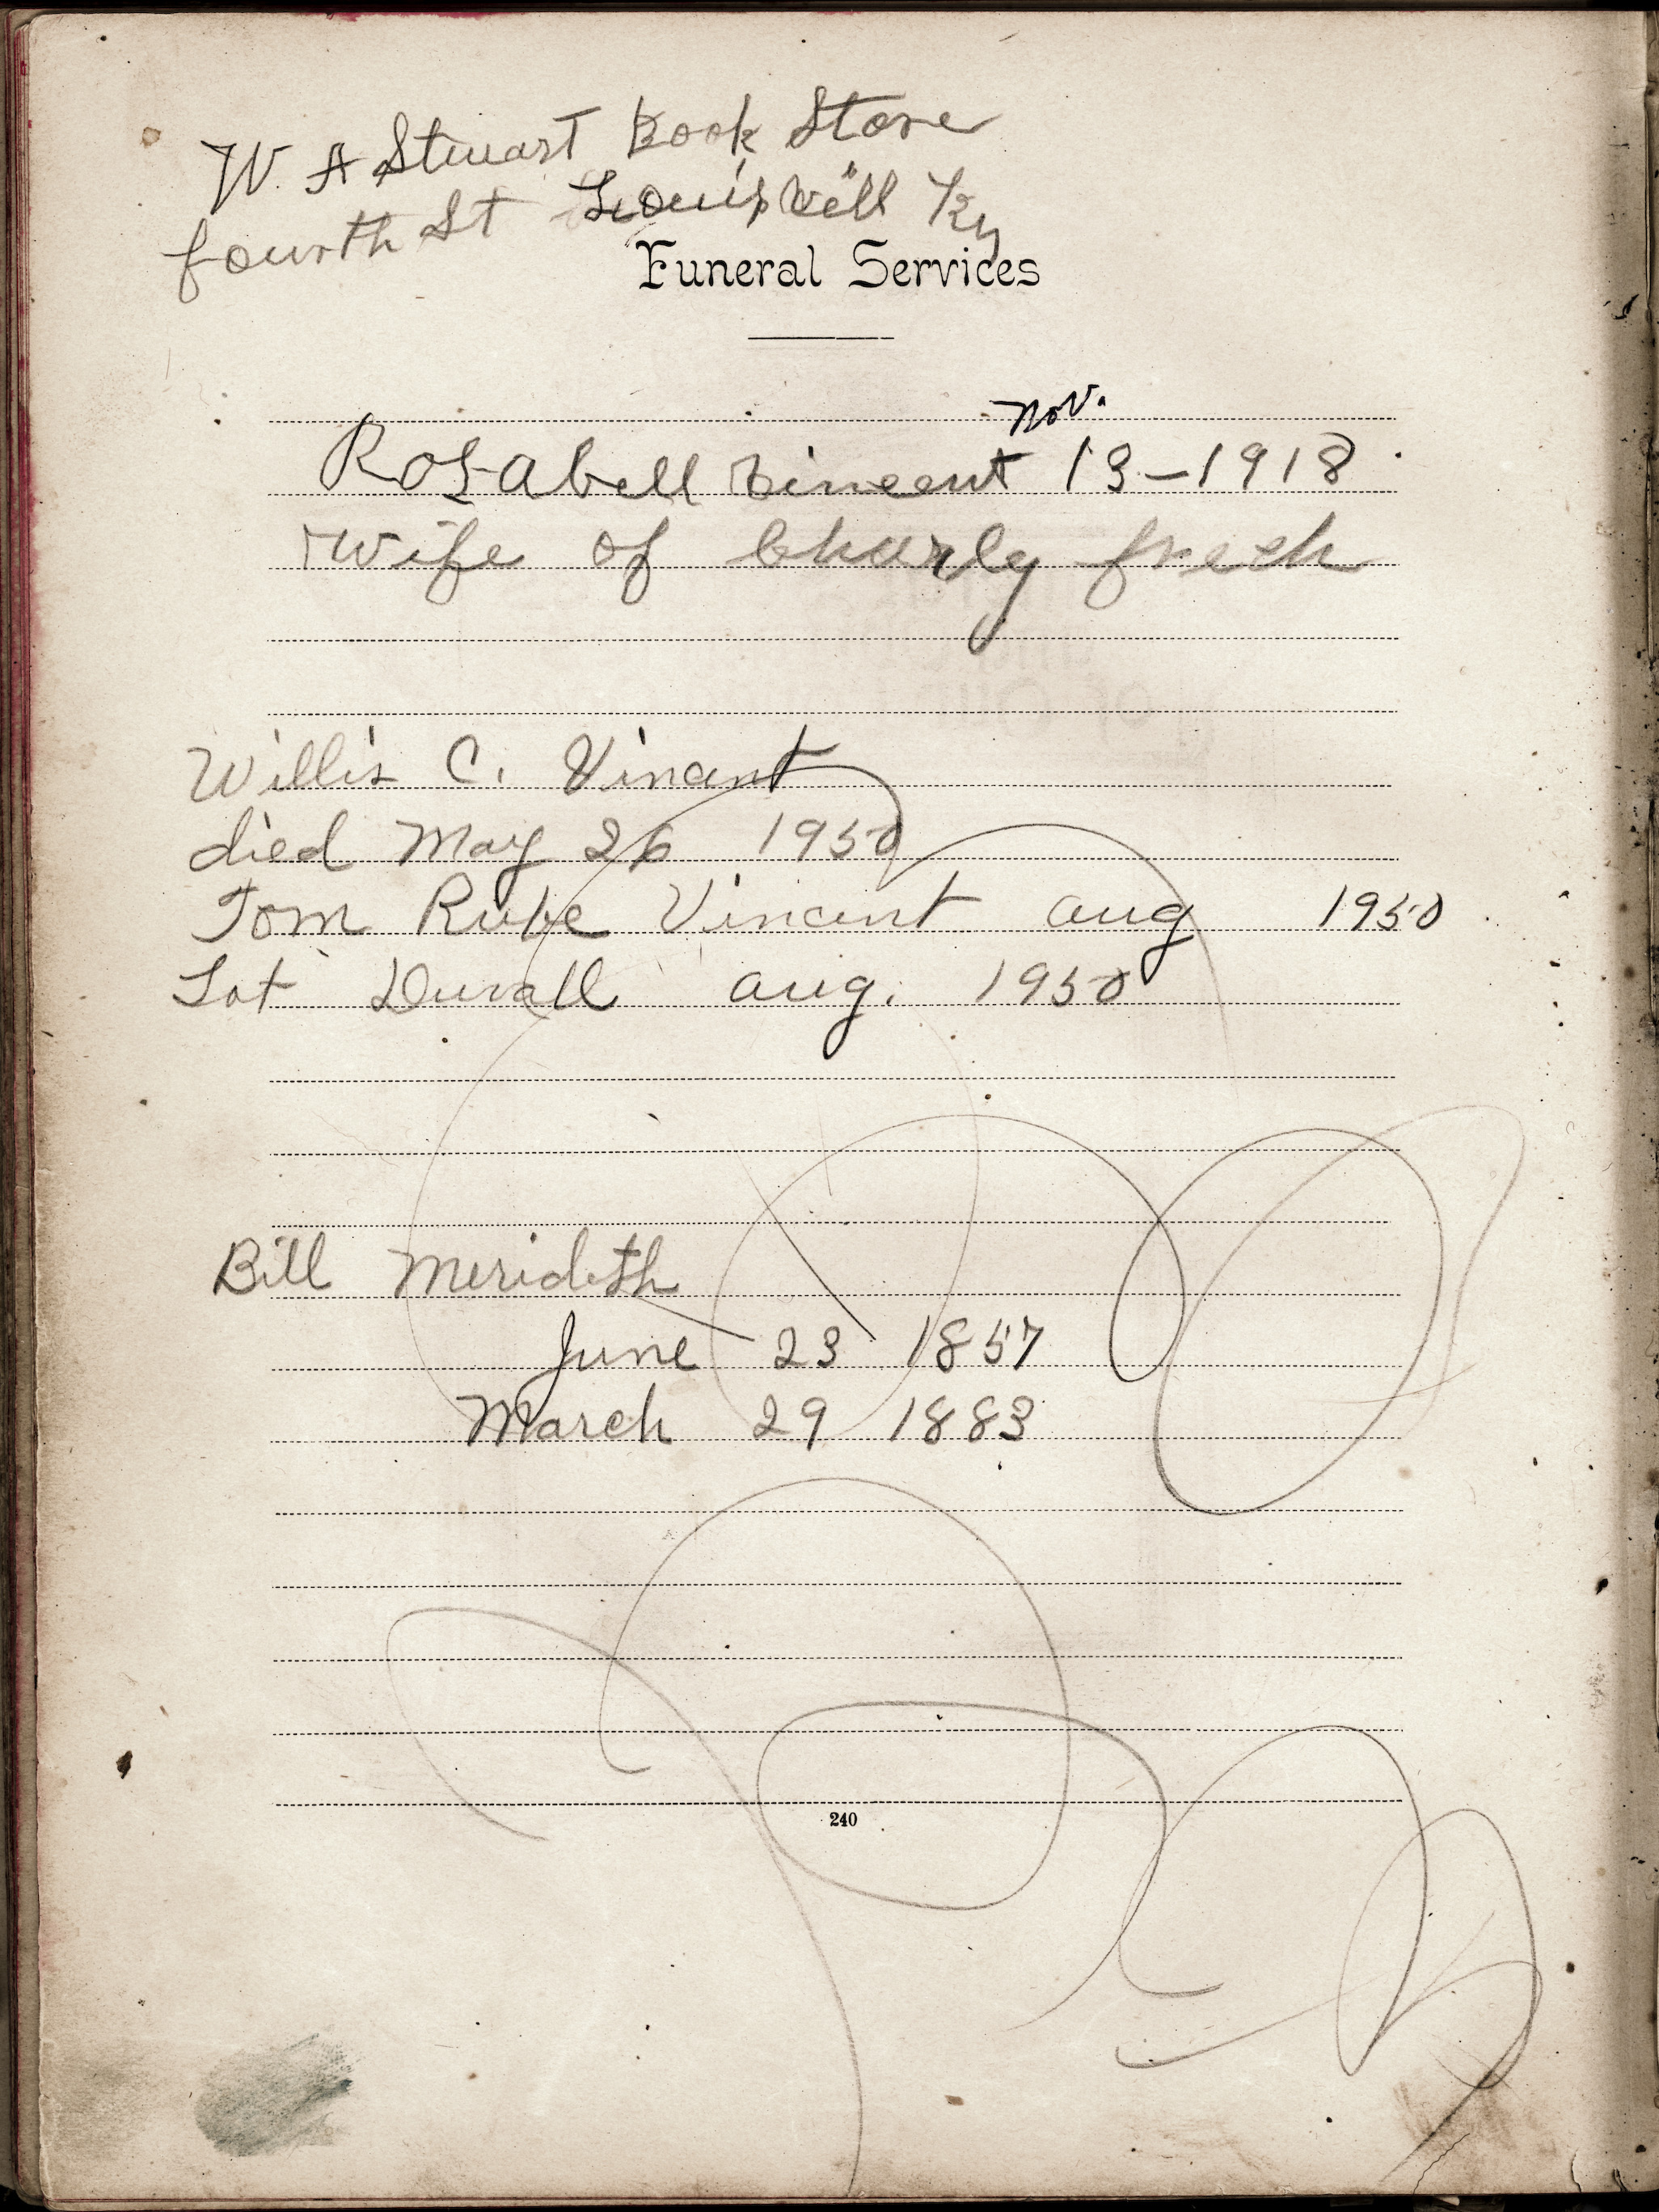 W. A Stuart Book Store
fourth St Louisvill Ky
Funeral Services
Nov.
Rosabell vincent 13-1918
Wife of Charly
Willis C. Vincent
died May 26 1950
Tom Rube Vincent Aug 1950
Lot Duvall Aug. 1950
Bill Merideth
June 23 1857
March 29 1883
240